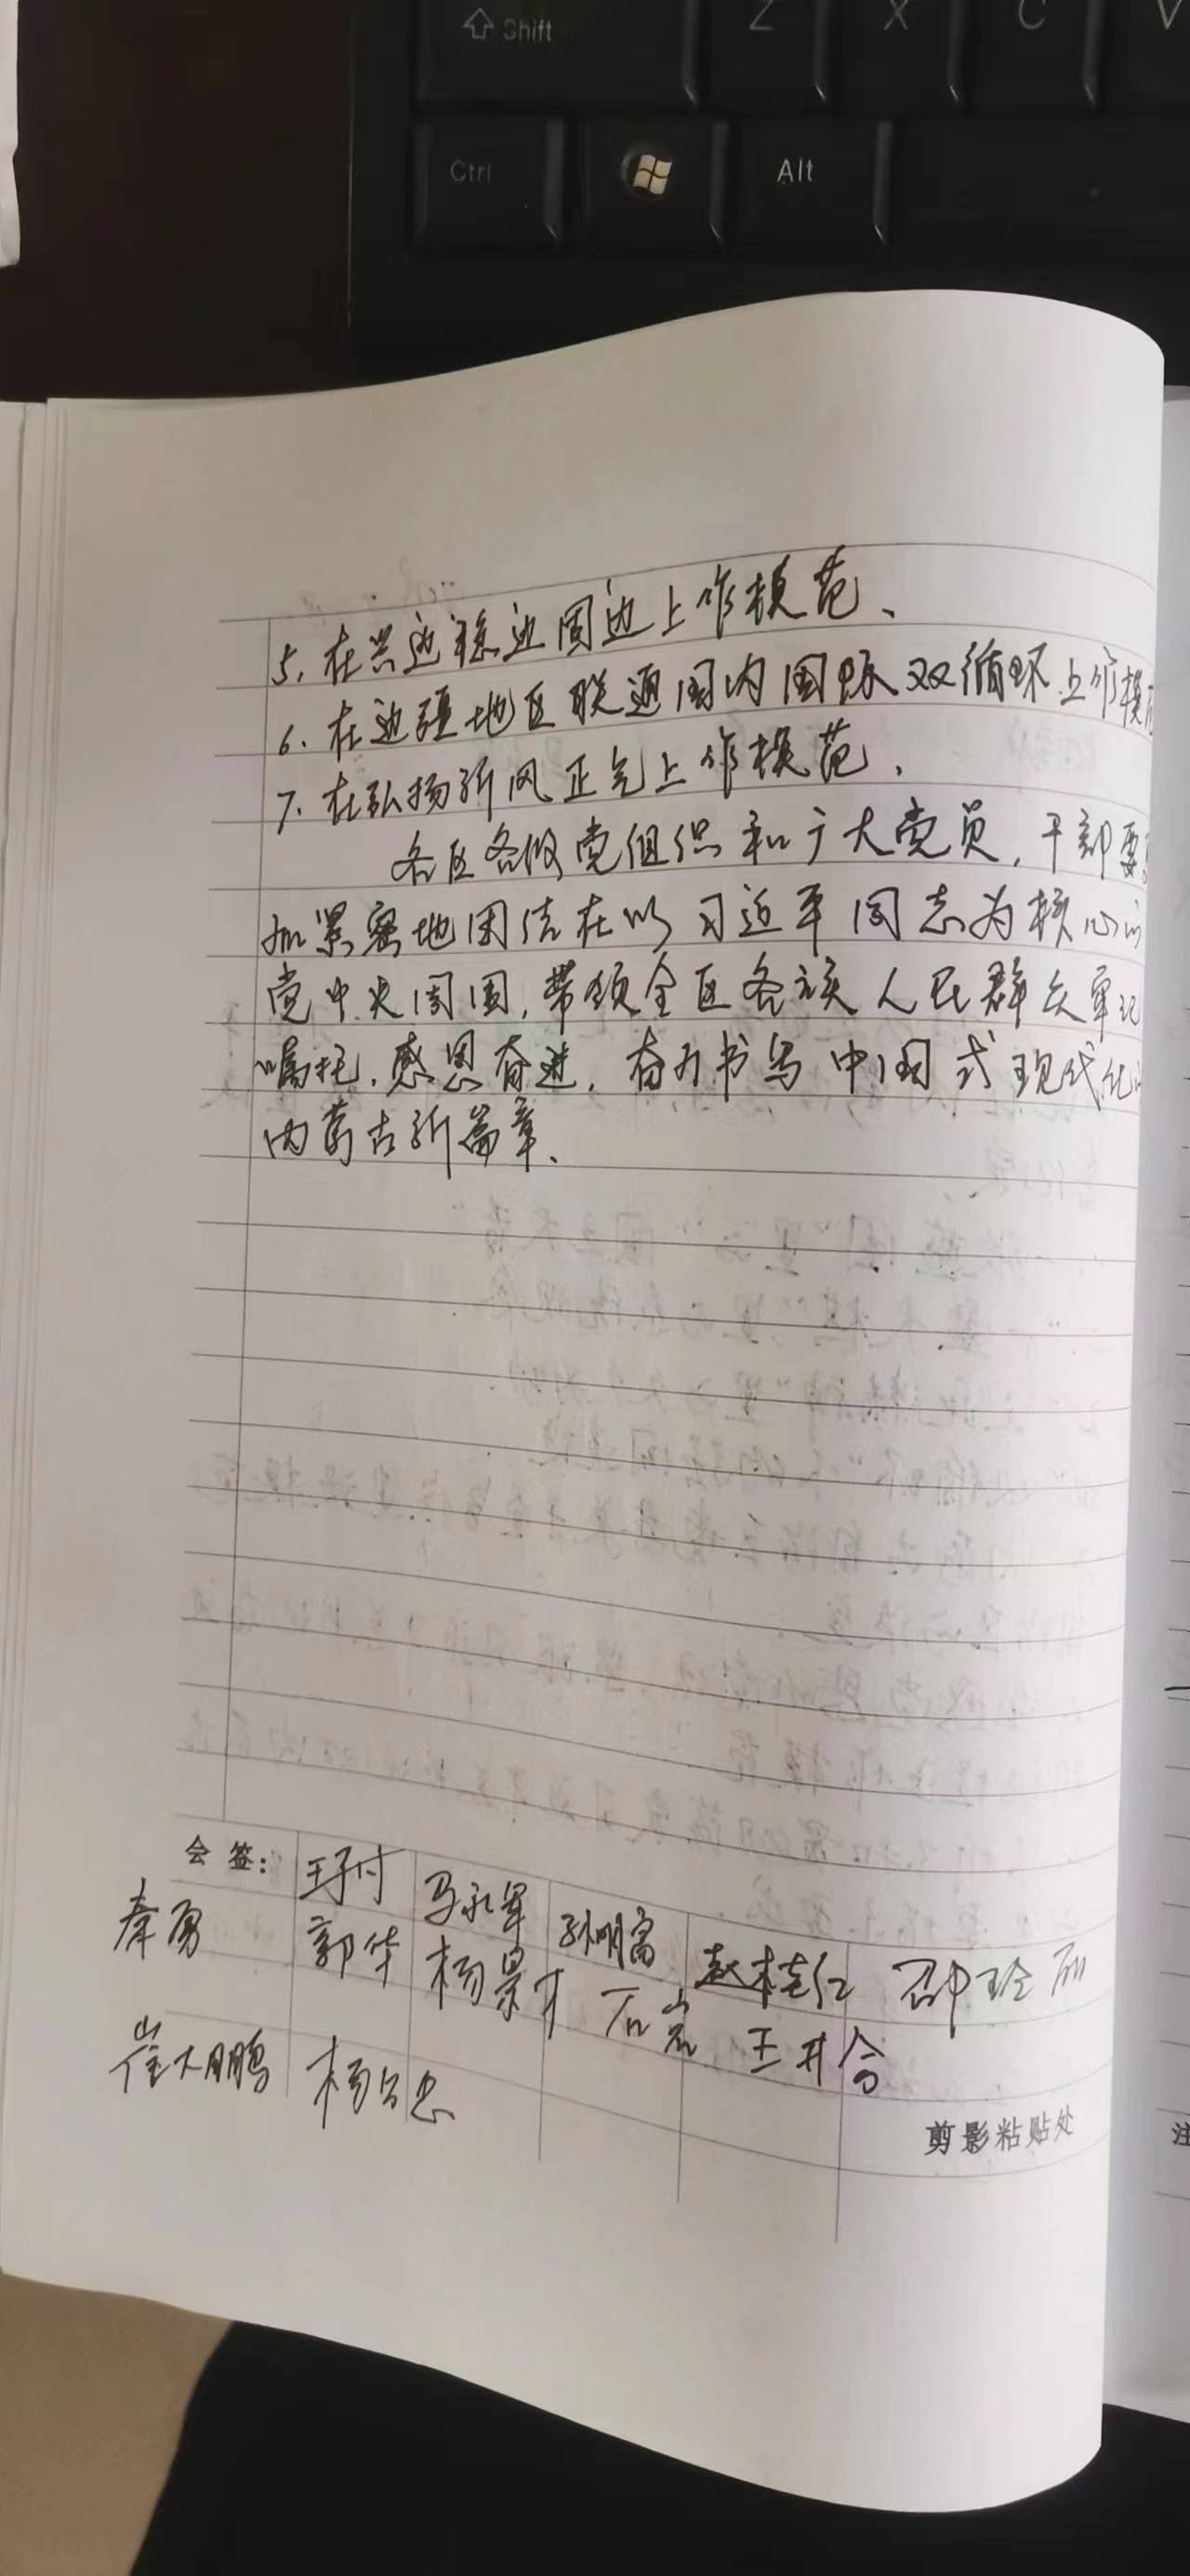 Shift Z X C V
Ctrl Alt
5、在兴边稳边固边上作模范、
6、在边疆地区联通国内国际双循环上作模范
7、在弘扬新风正气上作模范、
各区各级党组织和广大党员,干部要
加紧密地团结在以习近平同志为核心的
党中央周围,带领全区各族人民群众牢记
嘱托,感恩奋进,奋力书写中国式现代化的
内蒙古新篇章、
会签:
秦勇 王子付 马永军 孙明富 赵桂仁
郭华 杨景才 石岩 王井合
崔大鹏
剪影粘贴处
注